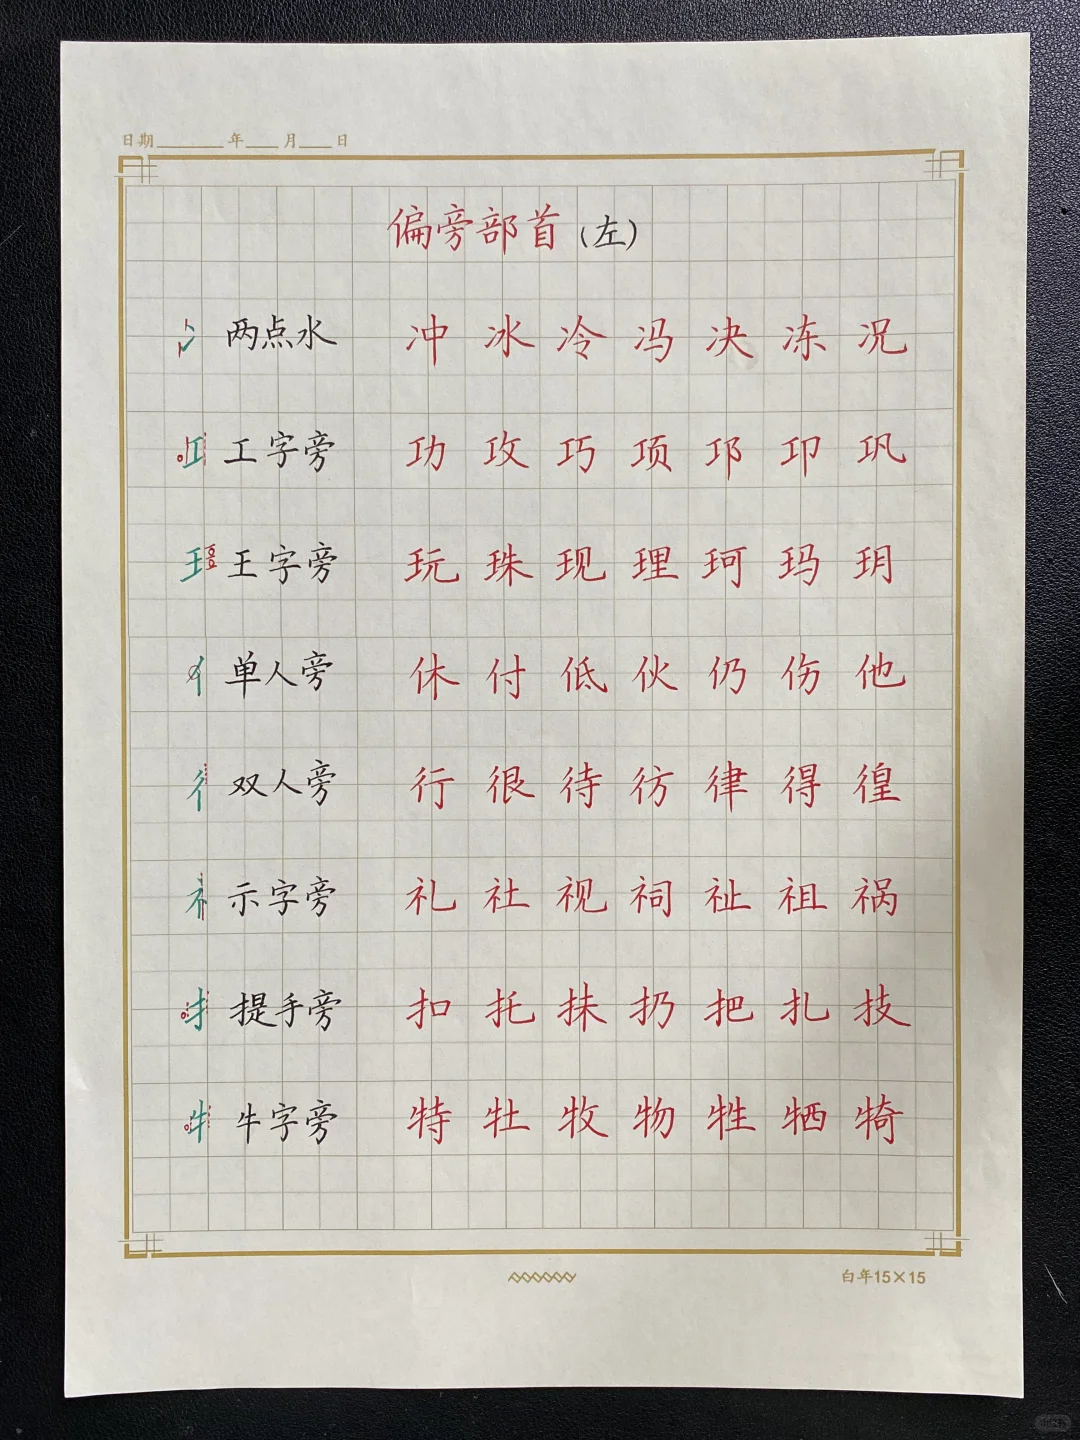 日期____年__月__日
偏旁部首(左)
冫 两点水 冲 冰 冷 冯 决 冻 况
工 工字旁 功 攻 巧 项 邛 卭 巩
王 王字旁 玩 珠 现 理 珂 玛 玥
亻 单人旁 休 付 低 伙 仍 伤 他
彳 双人旁 行 很 待 彷 律 得 徨
礻 示字旁 礼 社 视 祠 祉 祖 祸
扌 提手旁 扣 托 抹 扔 把 扎 技
牜 牛字旁 特 牡 牧 物 牲 牺 犄
白年15×15